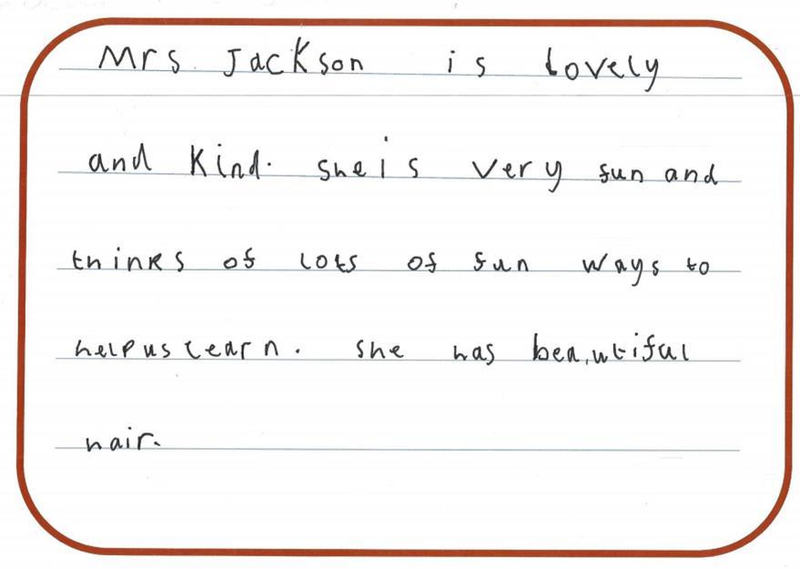 Mrs. Jackson is lovely
and kind. she is very fun and
thinks of lots of fun ways to
help us learn. she has beautiful
hair.